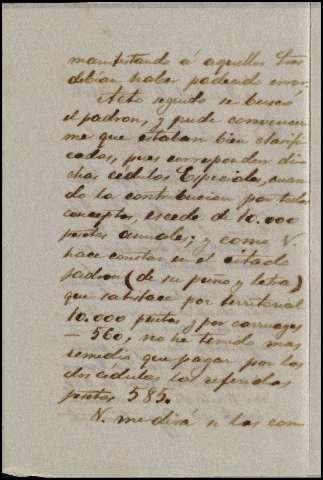 manifestando á aquellos tres
debian haber padecido error.
Acto seguido se buscó
el padron, y pude convencer
me que estaban bien clasifi
cadas, pues corresponden di
chas cédulas Especiales, cuan
do la contribucion por tales
conceptos, escede de 10.000
pesetas anuales; y como V.
hace constar en el citado
padron (de su puño y letra)
que satisface por territorial
10.000 pesetas y por carruages
— 560, no he tenido mas
remedio que pagar por las
dos cédulas las referidas
pesetas 585.
V. me dirá si las con